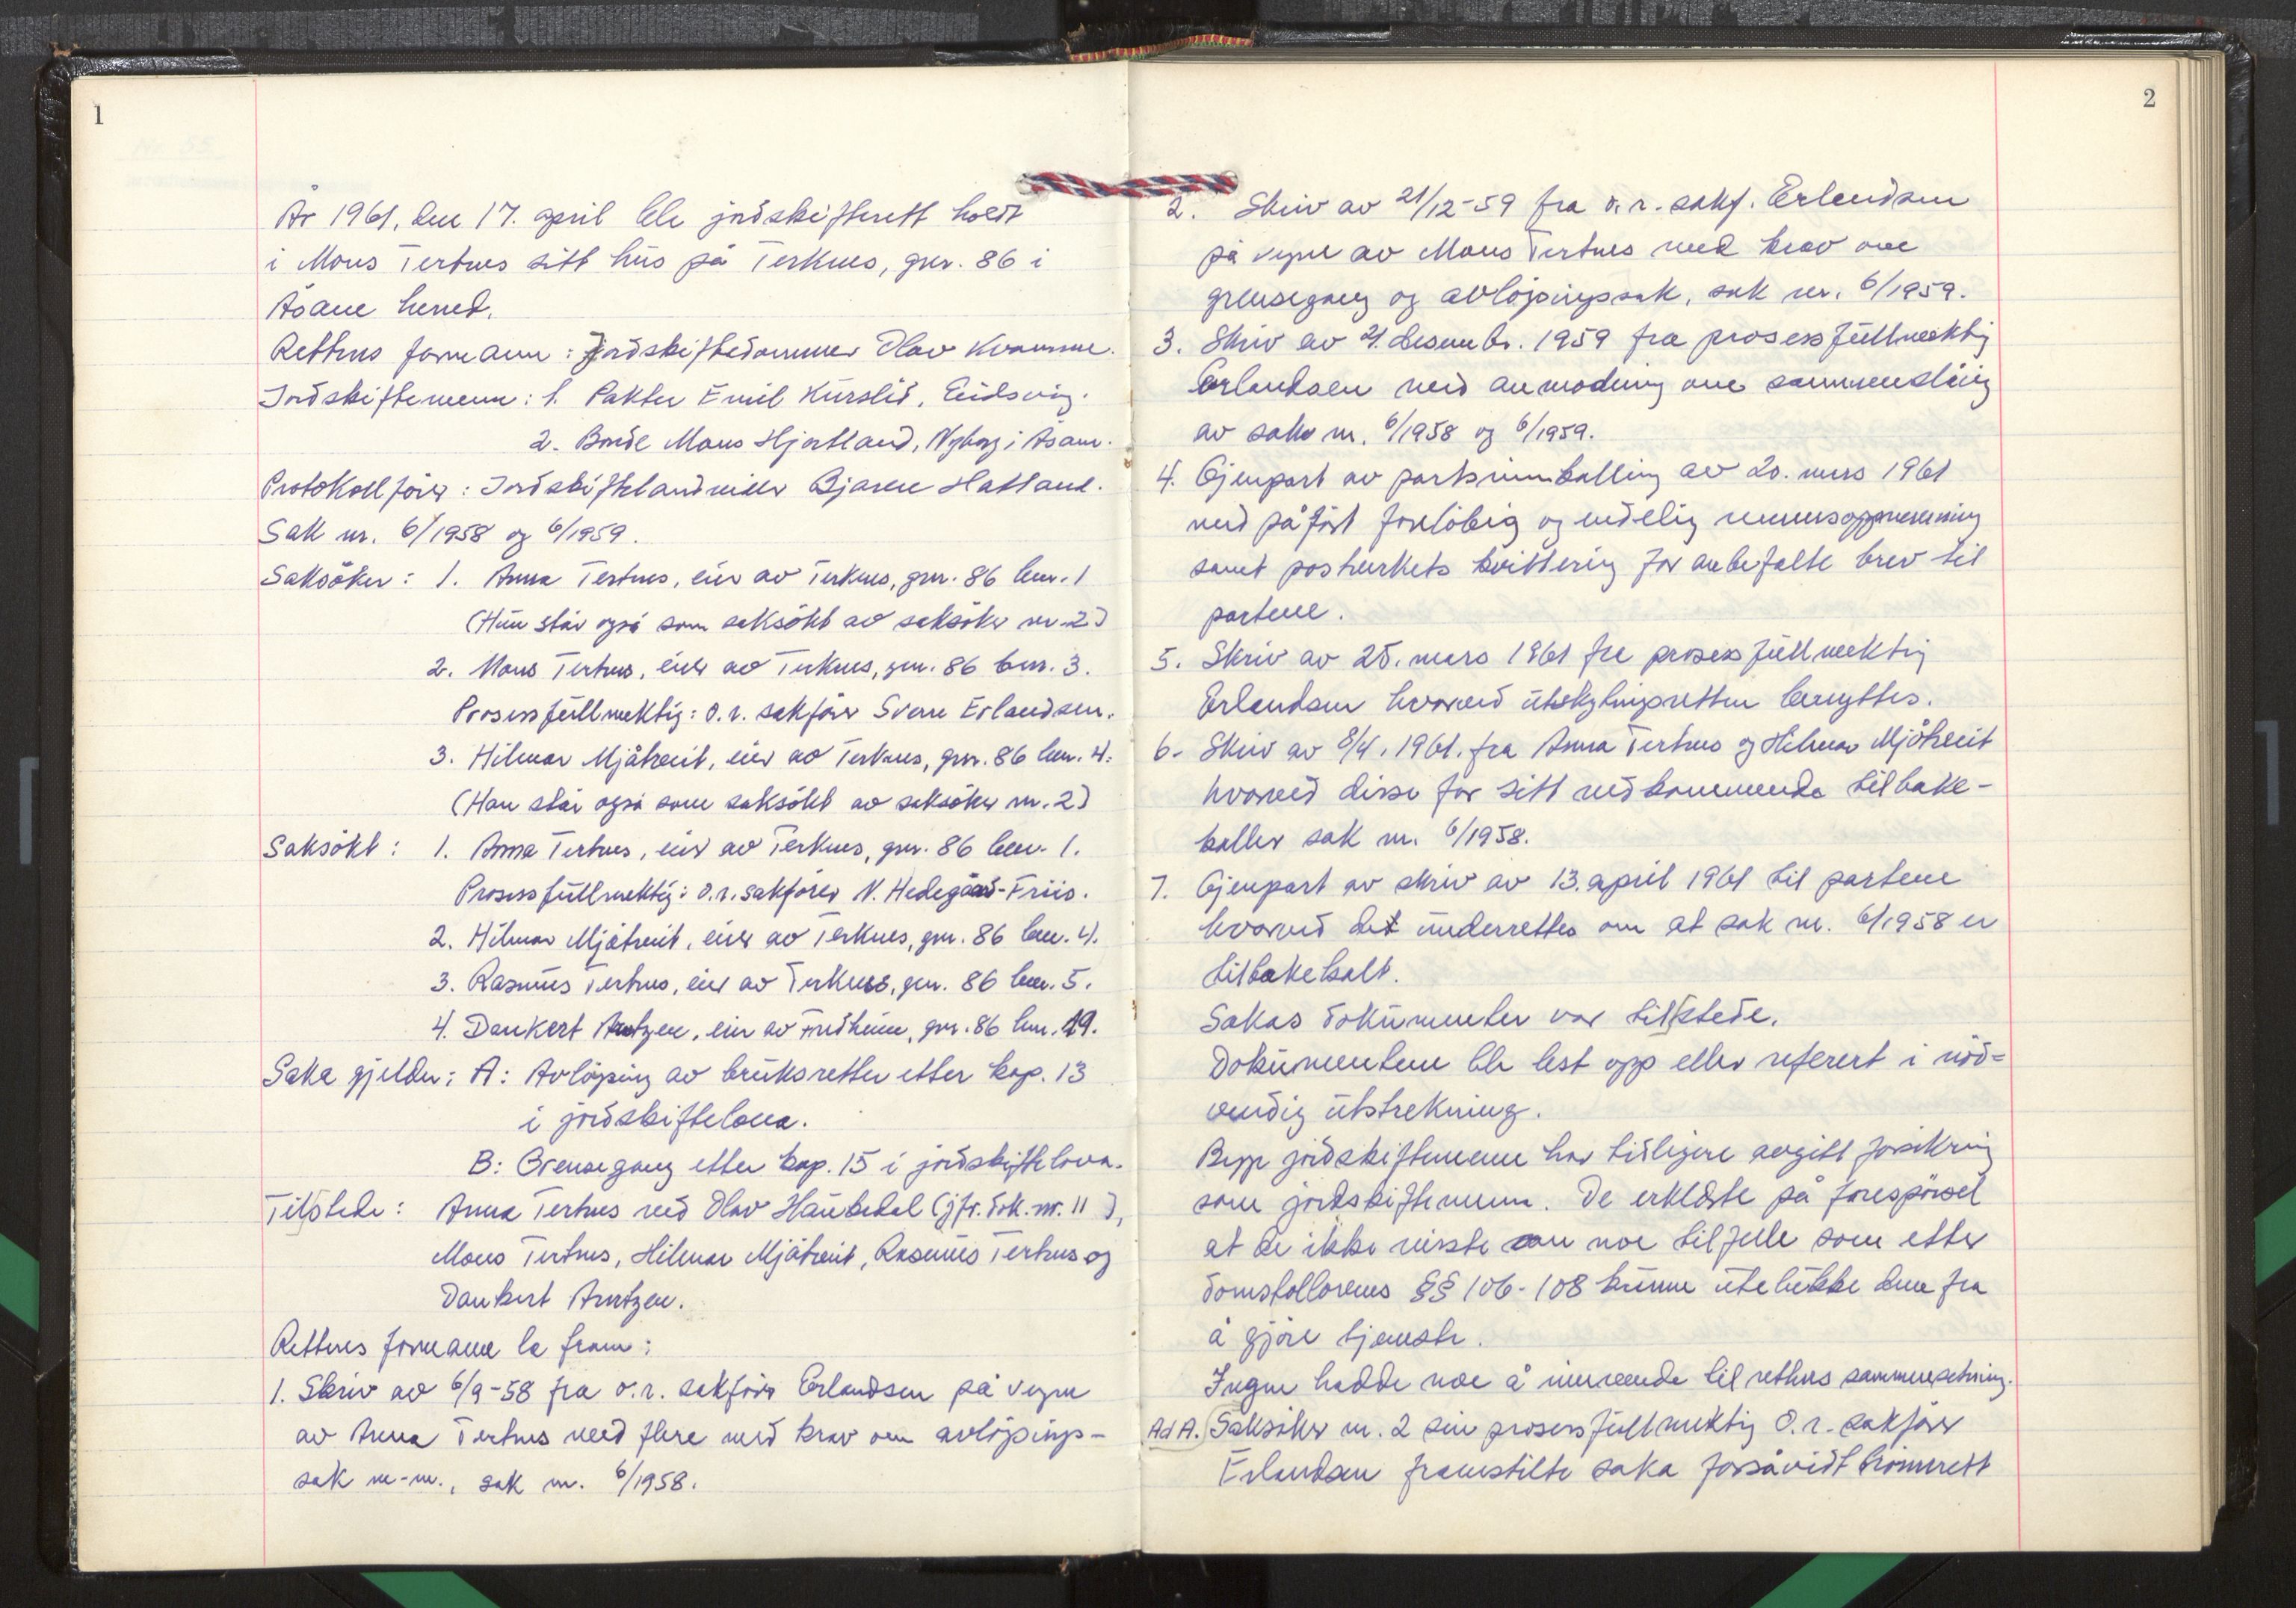 1
År 1961, den 17. april ble jordskifterett holdt
i Mons Tertnes sitt hus på Terknes, gnr. 86 i
Åsane herred.
Rettens formann: Jordskiftedommer Olav Kvamme.
Jordskiftemenn: 1. Pakter Emil Kurslid, Eidsvåg.
2. Bonde Mons Hjortland, Nyborg i Åsane.
Protokollfører: Jordskiftelandmåler Bjarne Hatland.
Sak nr. 6/1958 og 6/1959.
Saksøker: 1. Anna Tertnes, eier av Terknes, gnr. 86 bnr. 1
(Hun står også som saksøkt av saksøker nr. 2)
2. Mons Tertnes, eier av Terknes, gnr. 86 bnr. 3.
Prosessfullmektig: o.r. sakfører Sverre Erlandsen.
3. Hilmar Mjåtveit, eier av Terknes, gnr. 86 bnr. 4.
(Han står også som saksøkt av saksøker nr. 2)
Saksøkt: 1. Anna Tertnes, eier av Terknes, gnr. 86 bnr. 1.
Prosessfullmektig: o.r. sakfører N. Hedegård-Friis.
2. Hilmar Mjåtveit, eier av Terknes, gnr. 86 bnr. 4.
3. Rasmus Tertnes, eier av Terknes, gnr. 86 bnr. 5.
4. Dankert Arntzen, eier av Fredheim, gnr. 86 bnr. 19.
Saka gjelder: A: Avløysing av bruksretter etter kap. 13
i jordskiftelova.
B: Grensegang etter kap. 15 i jordskiftelova.
Tilstede: Anna Tertnes ved Olav Haukedal (jfr. dok. nr. 11),
Mons Tertnes, Hilmar Mjåtveit, Rasmus Tertnes og
Dankert Arntzen.
Rettens formann la fram:
1. Skriv av 6/9-58 fra o.r. sakfører Erlandsen på vegne
av Anna Tertnes med flere med krav om avløysings-
sak m.m., sak nr. 6/1958.
2
2. Skriv av 21/12-59 fra o.r. sakf. Erlandsen
på vegne av Mons Tertnes med krav om
grensegang og avløysingssak, sak nr. 6/1959.
3. Skriv av 21. desembr. 1959 fra prosessfullmektig
Erlandsen med anmodning om sammenslåing
av saker nr. 6/1958 og 6/1959.
4. Gjenpart av partsinnkalling av 20. mars 1961
med påført foreløbig og endelig
samt postverkets kvittering for anbefalte brev til
partene.
5. Skriv av 25. mars 1961 fra prosessfullmektig
Erlandsen hvorved utskytingsretten benyttes.
6. Skriv av 8/4. 1961. fra Anna Tertnes og Hilmar Mjåtveit
hvorved disse for sitt vedkommende tilbake-
kaller sak nr. 6/1958.
7. Gjenpart av skriv av 13. april 1961 til partene
hvorved det underrettes om at sak nr. 6/1958 er
tilbakekalt.
Sakas dokumenter var tilstede.
Dokumentene ble lest opp eller referert i nød-
vendig utstrekning.
Begge jordskiftemenn har tidligere avgitt forsikring
som jordskiftemenn. De erklærte på forespørsel
at de ikke visste om noe tilfelle som etter
domstollovens §§ 106-108 kunne utelukke dem fra
å gjøre tjeneste.
Ingen hadde noe å innvende til rettens sammensetning.
Ad A. Saksøker nr. 2 sin prosessfullmektig o.r. sakfører
Erlandsen framstilte saka forsåvidt